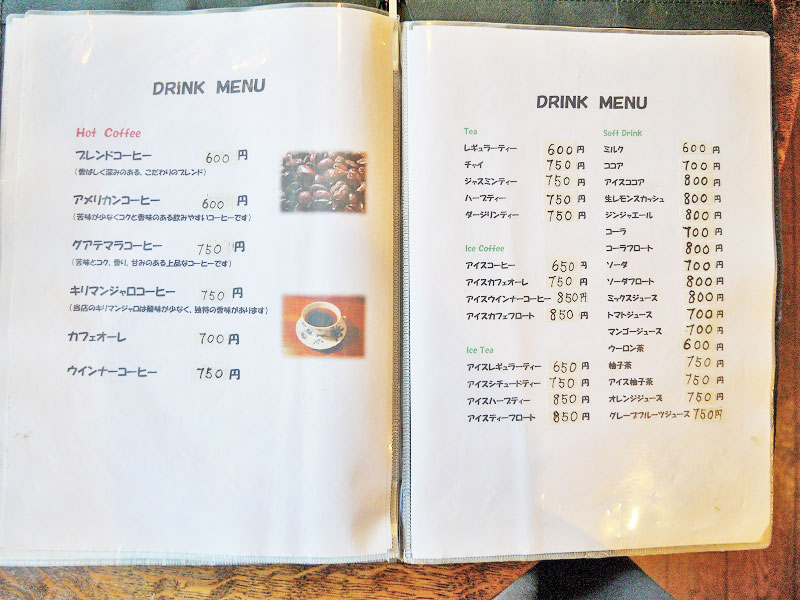 DRINK MENU
Hot Coffee
ブレンドコーヒー 600 円
(香ばしく深みのある、こだわりのブレンド)
アメリカンコーヒー 600 円
(苦味が少なくコクと香味のある飲みやすいコーヒーです)
グアテマラコーヒー 750 円
(苦味とコク、香り、甘みのある上品なコーヒーです)
キリマンジャロコーヒー 750 円
(当店のキリマンジャロは酸味が少なく、独特の香味があります)
カフェオーレ 700 円
ウインナーコーヒー 750 円
DRINK MENU
Tea
レギュラーティー 600 円
チャイ 750 円
ジャスミンティー 750 円
ハーブティー 750 円
ダージリンティー 750 円
Ice Coffee
アイスコーヒー 650 円
アイスカフェオーレ 750 円
アイスウインナーコーヒー 850円
アイスカフェフロート 850 円
Ice Tea
アイスレギュラーティー 650 円
アイスシチュードティー 750 円
アイスハーブティー 850 円
アイスティーフロート 850 円
Soft Drink
ミルク 600 円
ココア 700 円
アイスココア 800 円
生レモンスカッシュ 800 円
ジンジャエール 800 円
コーラ 700 円
コーラフロート 800 円
ソーダ 700 円
ソーダフロート 800 円
ミックスジュース 800 円
トマトジュース 700 円
マンゴージュース 700 円
ウーロン茶 600 円
柚子茶 750 円
アイス柚子茶 750 円
オレンジジュース 750 円
グレープフルーツジュース 750円